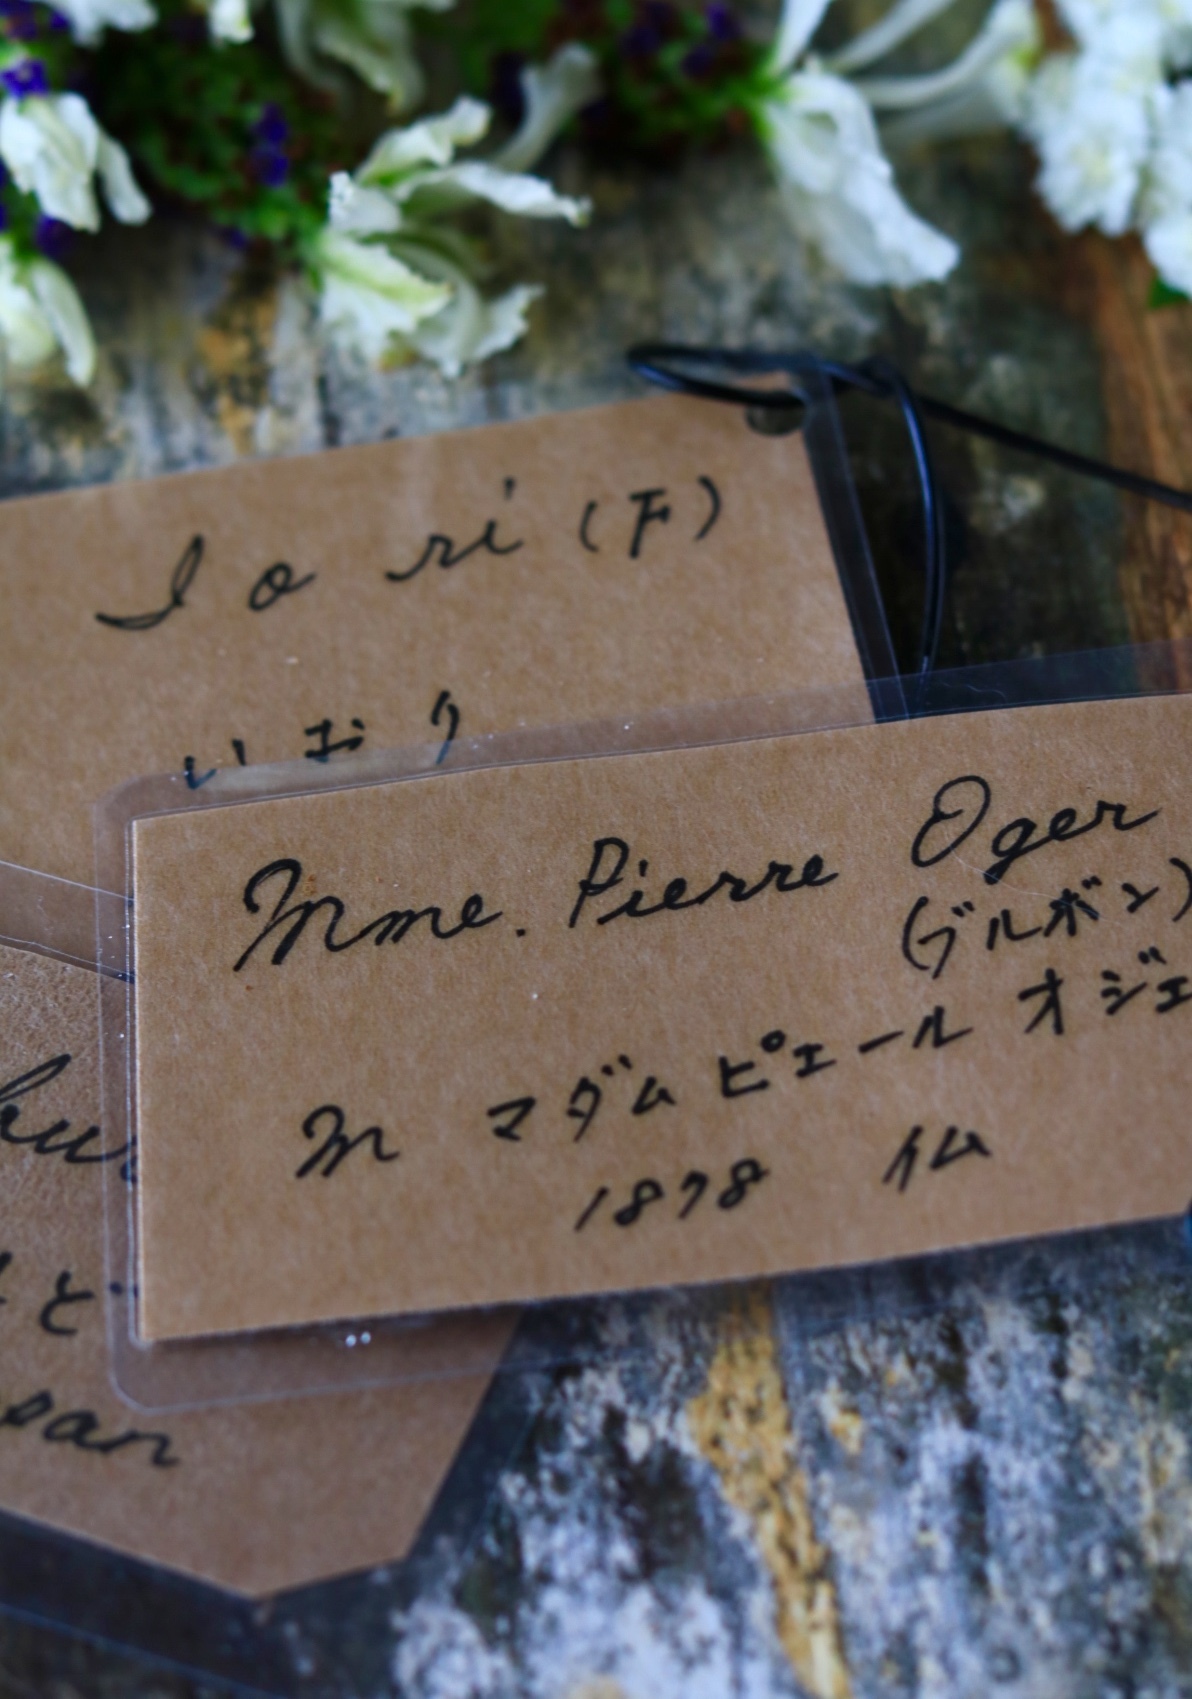 Iori (F)
いおり
Mme. Pierre Oger
(ブルボン)
M マダム ピエール オジェ
1878 仏
san